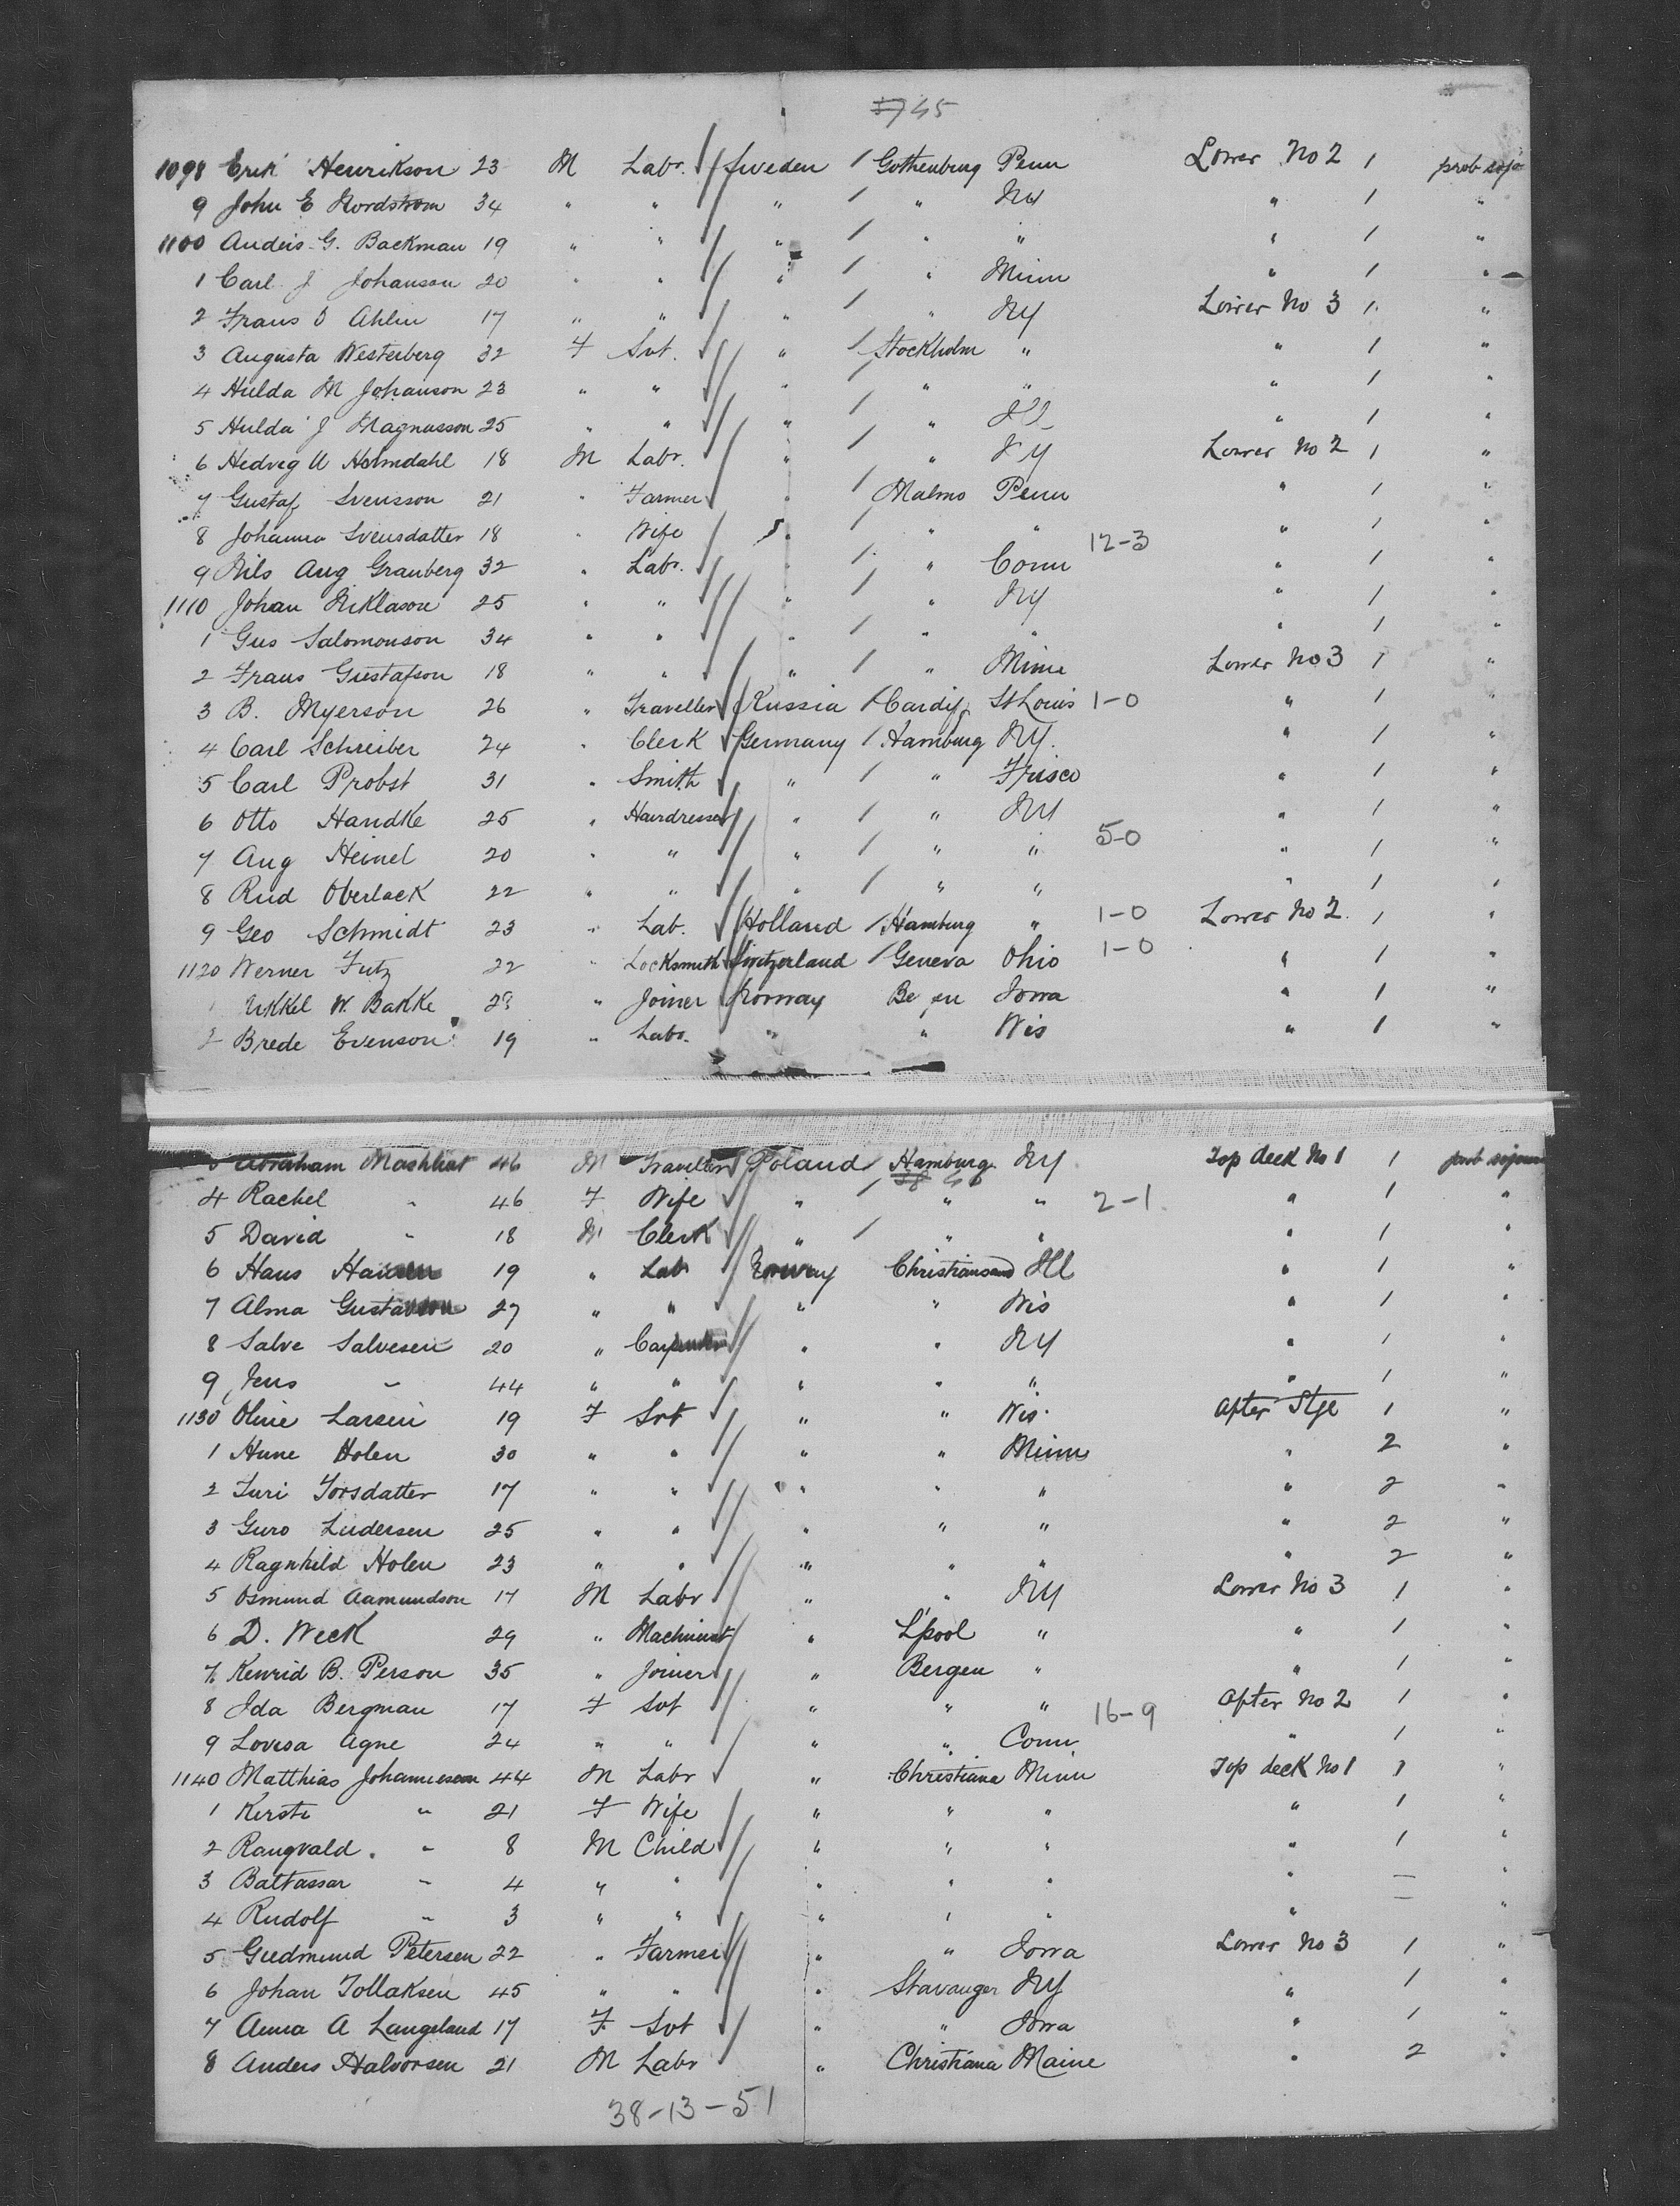 745
1098 Erik Henrikson 23 M Labr. Sweden / Gothenburg Penn Lower No 2 1 prob sojo
9 John E Nordstrom 34 " " " / " NY " 1 "
1100 Anders G. Backman 19 " " " / " " " 1 "
1 Carl J Johanson 20 " " " / " Minn " 1 "
2 Frans O Ahlin 17 " " " / " NY Lower No 3 1 "
3 Augusta Westerberg 32 F Svt. " / Stockholm " " 1 "
4 Hulda M Johanson 23 " " " / " " " 1 "
5 Hulda J Magnusson 25 " " " / " " 1 "
6 Hedvig U Holmdahl 18 M Labr. " / " NY Lower No 2 1 "
7 Gustaf Svensson 21 " Farmer " / Malmo Penn " 1 "
8 Johanna Svensdatter 18 " Wife " / " " 12-3 " 1 "
9 Nils Aug Granberg 32 " Labr. " / " Conn " 1 "
1110 Johan Niklason 25 " " " / " NY " 1 "
1 Gus Salomonson 34 " " " / " " " 1 "
2 Frans Gustafson 18 " " " / " Minn Lower No 3 1 "
3 B. Myerson 26 " Traveller Russia / Cardiff St Louis 1-0 " 1 "
4 Carl Schreiber 24 " Clerk Germany / Hamburg NY. " 1 "
5 Carl Probst 31 " Smith " / " Frisco " 1 "
6 Otto Handke 25 " Hairdresser " / " NY " 1 "
7 Aug Heinel 20 " " " / " " 5-0 " 1 "
8 Rud Oberlack 22 " " " / " " " 1 "
9 Geo Schmidt 23 " Lab. Holland / Hamburg " 1-0 Lower No 2. 1 "
1120 Werner Futz 22 " Locksmith Switzerland / Geneva Ohio 1-0 " 1 "
Nikkel W. Bakke 23 " Joiner Norway Be en Iowa " 1 "
2 Brede Evenson 19 " Labr. " " Wis " 1 "
3 Abraham Mashkat 46 M Traveller Poland / Hamburg NY Top deck No 1 1 prob sojour
4 Rachel " 46 F Wife " / " " 2-1 " 1 "
5 David " 18 M Clerk " / " " " 1 "
6 Hans Hansen 19 " Lab Norway Christiansand Ill " 1 "
7 Alma Gustavson 27 " " " " Wis " 1 "
8 Salve Salvesen 20 " Carpenter " " NY " 1 "
9 Jens " 44 " " " " " " 1 "
1130 Oline Larsen 19 F Svt " " Wis After Stge 1 "
1 Hune Holen 30 " " " " Minn " 2 "
2 Turi Torsdatter 17 " " " " " " 2 "
3 Guro Lindersen 25 " " " " " " 2 "
4 Ragnhild Holen 23 " " " " " " 2 "
5 Osmund Aamundson 17 M Labr " " NY Lower No 3 1 "
6 D. Weck 29 " Machinist " L'pool " " 1 "
7 Kenrid B. Person 35 " Joiner " Bergen " " 1 "
8 Ida Bergman 17 F Svt " " " 16-9 After No 2 1 "
9 Lovisa Agne 24 " " " " Conn " 1 "
1140 Matthias Johannesen 44 M Labr " Christiana Minn Top deck No 1 1 "
1 Kersti " 21 F Wife " " " " 1 "
2 Rangvald " 8 M Child " " " " 1 "
3 Baltassar " 4 " " " " " " — "
4 Rudolf " 3 " " " " " " — "
5 Gudmund Petersen 22 " Farmer " " Iowa Lower No 3 1 "
6 Johan Tollaksen 45 " " " Stavanger NY " 1 "
7 Anna A Langeland 17 F Svt " " Iowa " 1 "
8 Anders Halvorsen 21 M Labr " Christiana Maine " 2 "
38-13-51